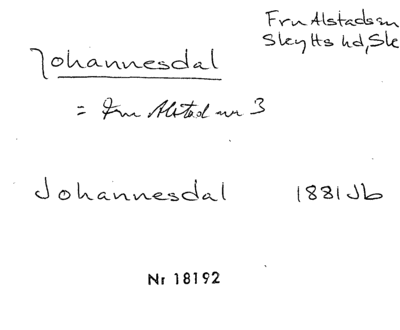 Fru Alstads sn
Skytts hd, Sk
Johannesdal
= Fru Alstad nr 3
Johannesdal 1881 Jb
Nr 18192